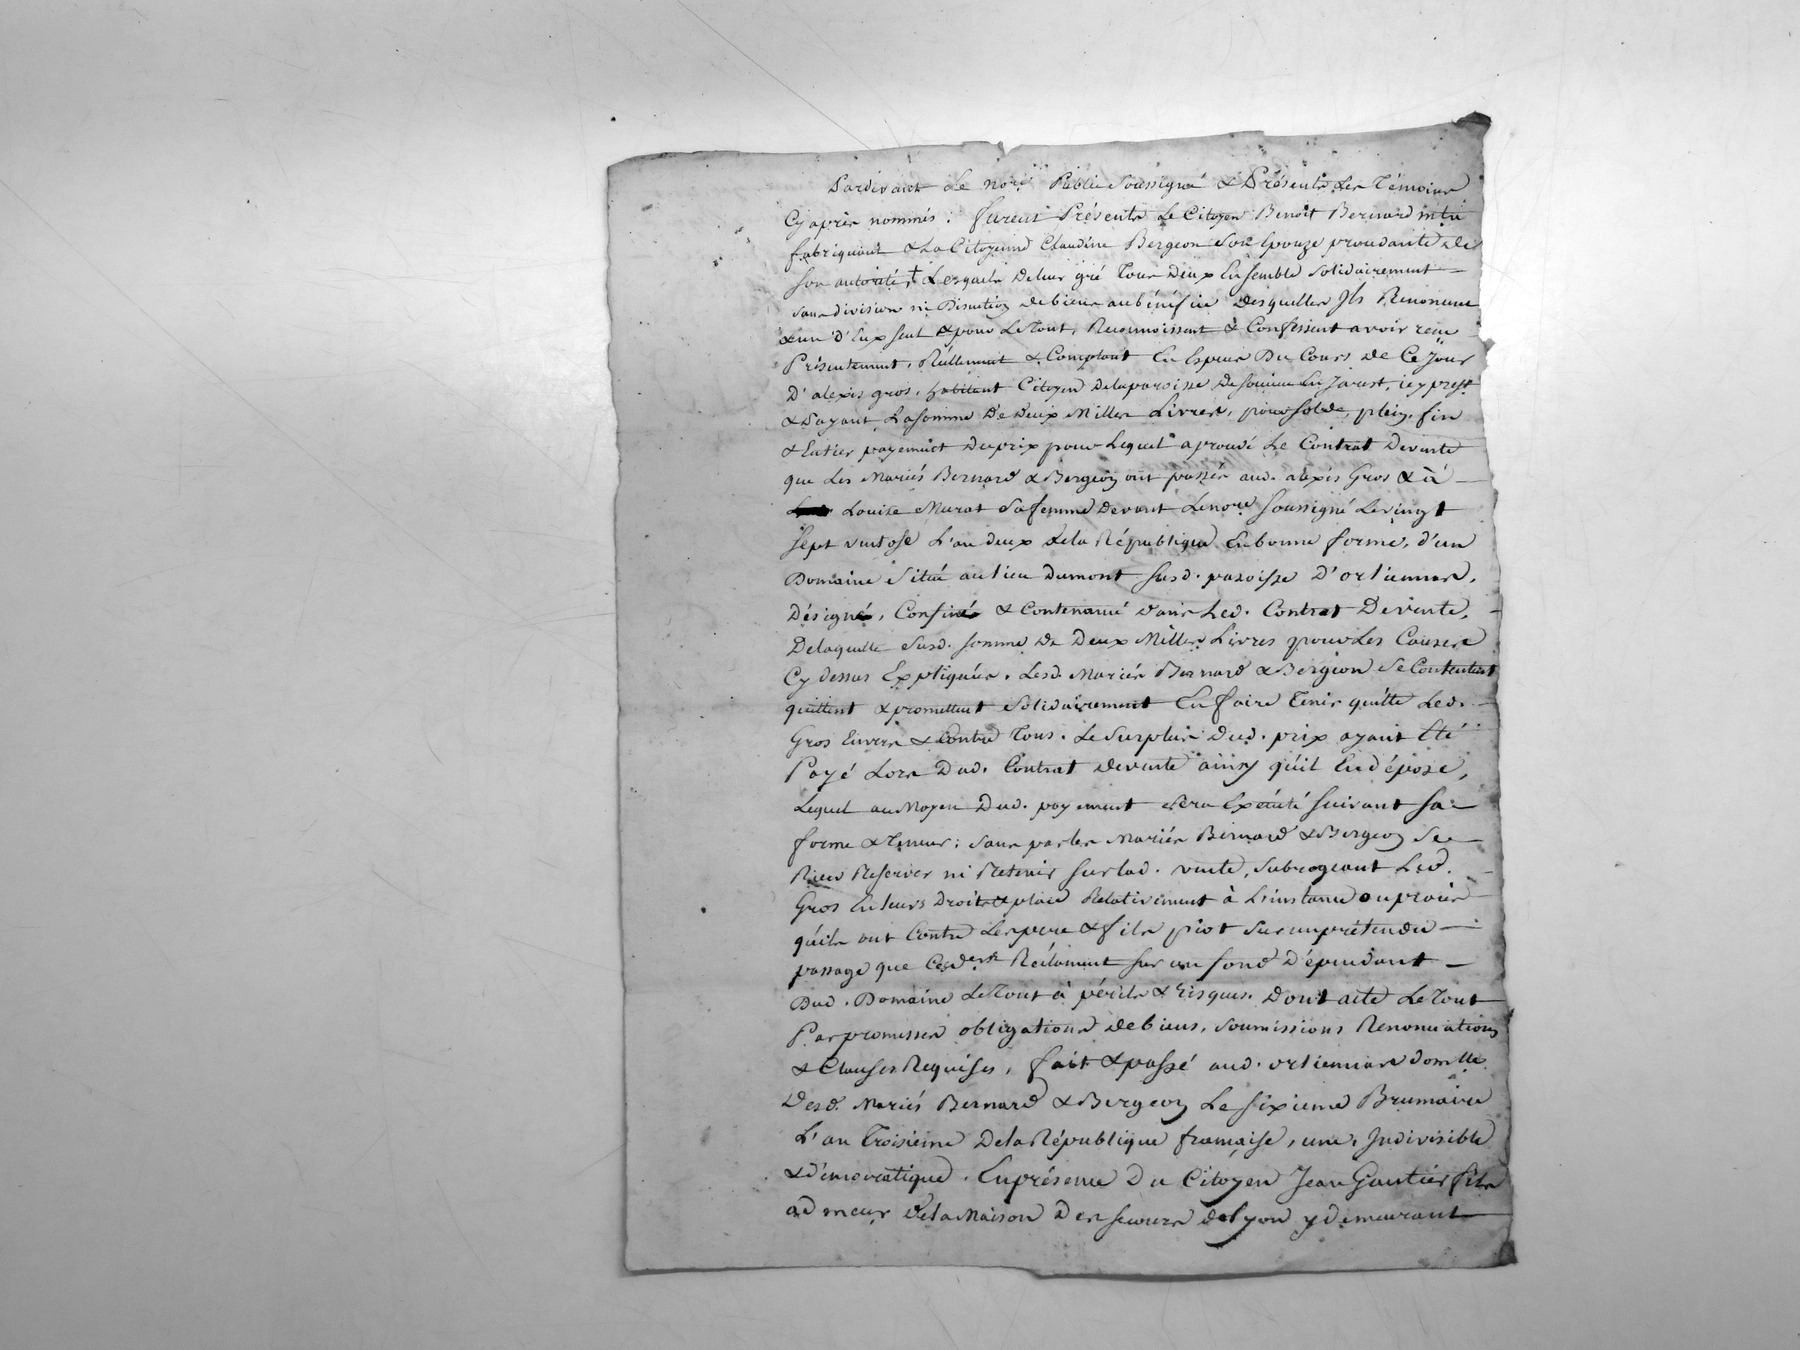 Pardevant Le Nore Public Soussigné & Présents Les Témoins
Cy après nommés. furent Présents Le Citoyen Benoit Bernard
fabriquant & La Citoyenne Claudine Bergeon Son Epouze procedante de
son autorité, † Lesquels De leur gré Tous Deux Ensemble solidairement
sans division ni Discution de biens au bénéfice desquelles Ils Renoncent
& un d'Eux seul & pour Le Tout, Reconnoissent & Confessent avoir reçu
Présentement, Réellement & Comptant En Espèces Du Cours de Ce Jour
D'alexis gros, habitant Citoyen de la paroisse De en Jarest, icy prest
& Payant La Somme De Deux Milles Livres, pour solde, plein, fin
& Entier payement du prix pour Lequel a prouvé Le Contrat De vente
que Les Mariés Bernard & Bergeon ont passés aud. alexis Gros & à
Louise Murat Sa femme Devant Le nore Soussigné Le vingt
sept ventose L'an deux de la République En bonne forme, d'un
Domaine Situé au lieu Dumont susd. paroisse D'
Désigné, Confiné & Contenance dans Led. Contrat De vente,
De laquelle Susd. somme De Deux Milles Livres pour Les Causes
Cy dessus Expliquées. Lesd. Mariés Bernard & Bergeon Se Contentent
quittent & promettent solidairement En faire Tenir quitte Led.
Gros Envers & Contre Tous. Le Surplus Dud. prix ayant Eté
Payé Lors Dud. Contrat de vente ainsy qu'il En dépose,
Lequel au Moyen Dud. payement sera Exécuté suivant sa
forme & Teneur; sans par les Mariés Bernard & Bergeon Se
Rien Reserver ni Retenir sur lad. vente, subrogeant Led.
Gros En leurs Droits & place Relativement à L'instance ou procès
qu'ils ont Contre Les père & fils piot Sur un prétendu
passage que Cesders Réclament sur un fond D'épendant
Dud. Domaine Le Tout à périls & risques. Dont acte Le Tout
Par promesses obligations de biens, soumissions Renonciations
& Clauses Requises, fait & passé aud. domlle
Desd. Mariés Bernard & Bergeon Le sixieme Brumaire
L'an Troisieme De la République française, une, Indivisible
& démocratique. En présence Du Citoyen Jean Gautier fils
de la Maison Des secours de Lyon y demeurant